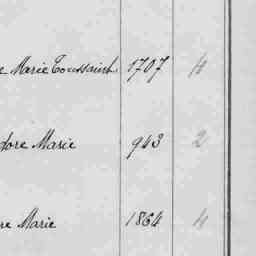 e Marie Toussaint 1707 4
dore Marie 943 2
re Marie 1864 4